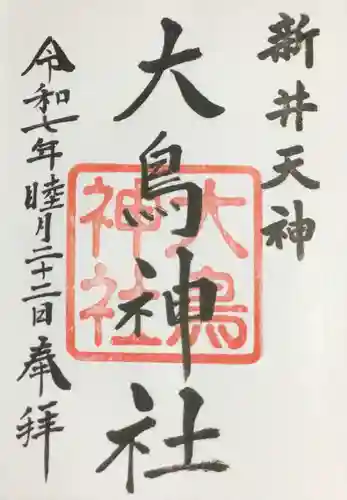 新井天神
大鳥神社
大鳥神社
令和七年睦月二十二日奉拝